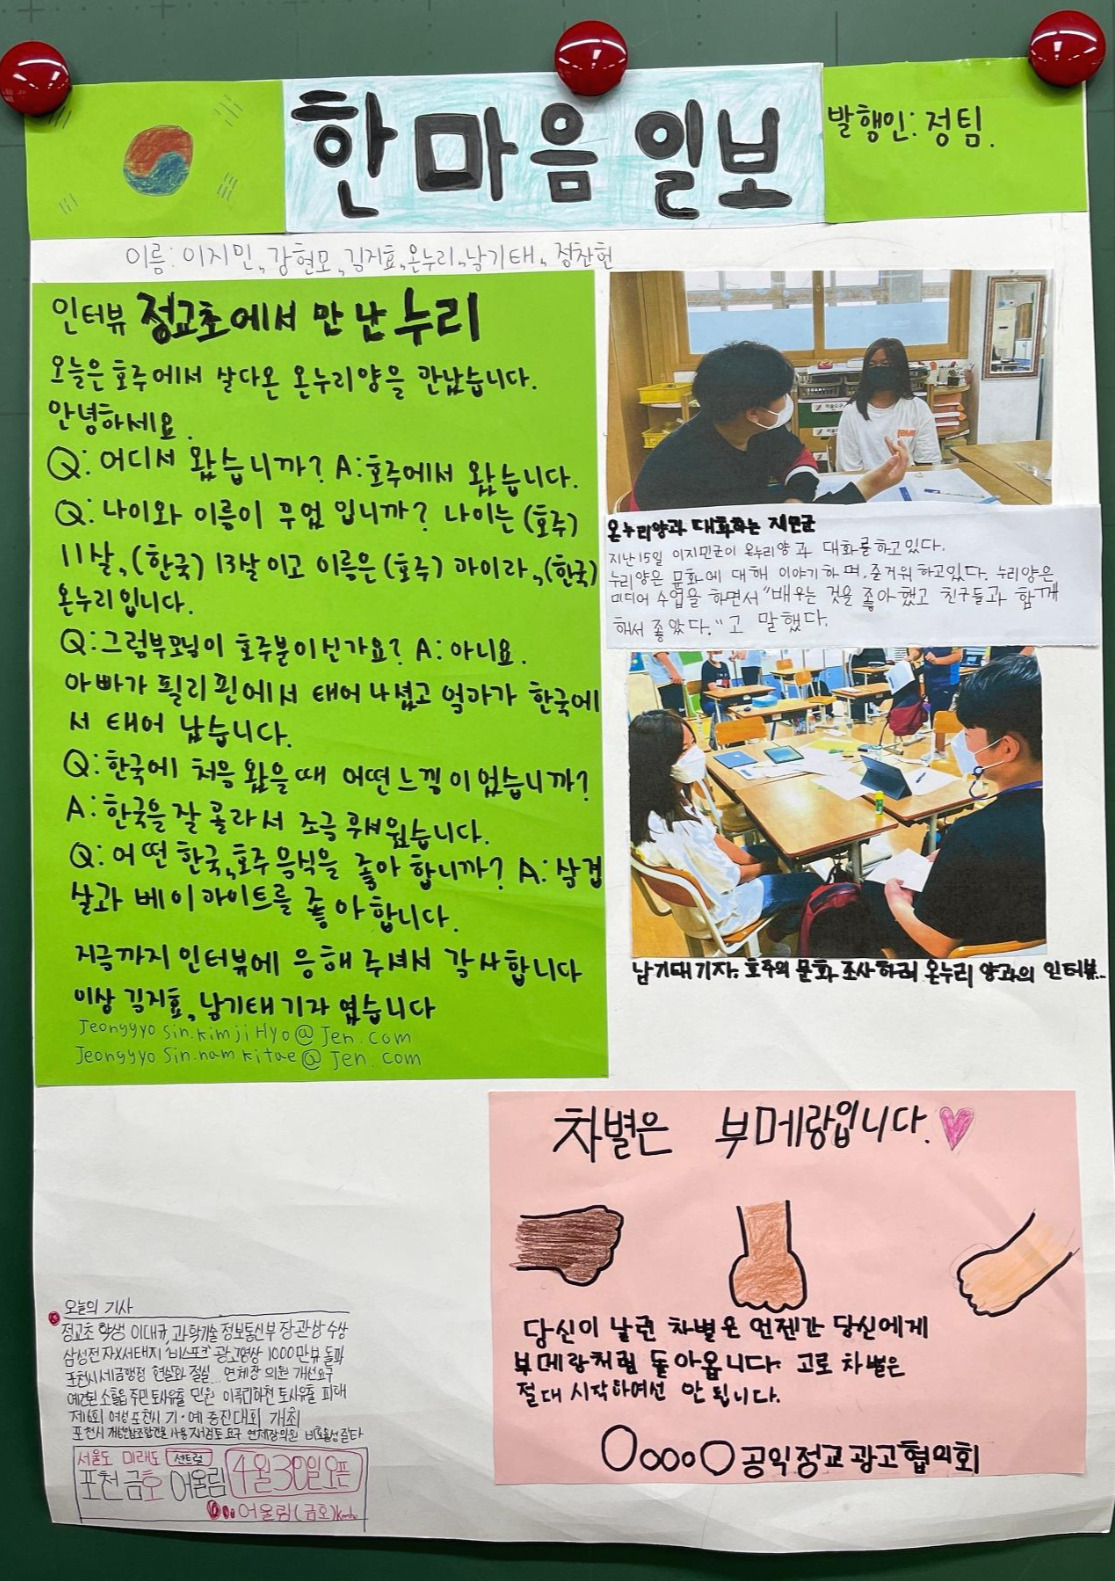 한마음 일보
발행인: 정팀.
이름: 이지민, 강현모, 김지효, 온누리, 남기태, 정찬헌
인터뷰 정교초에서 만난 누리
오늘은 호주에서 살다온 온누리양을 만났습니다.
안녕하세요.
Q: 어디서 왔습니까? A: 호주에서 왔습니다.
Q: 나이와 이름이 무엇 입니까? 나이는 (호주)
11살, (한국) 13살이고 이름은 (호주) 마이라, (한국)
온누리입니다.
Q: 그럼부모님이 호주분이신가요? A: 아니요.
아빠가 필리핀에서 태어나셨고 엄마가 한국에
서 태어 났습니다.
Q: 한국에 처음 왔을때 어떤느낌이었습니까?
A: 한국을 잘 몰라서 조금 무서웠습니다.
Q: 어떤 한국,호주 음식을 좋아 합니까? A: 삼겹
살과 베이마이트를 좋아합니다.
지금까지 인터뷰에 응해 주셔서 감사합니다
이상 김지효, 남기태 기자 였습니다
Jeonggyo Sin.kimjiHyo@Jen.com
Jeonggyo Sin.namkitae@Jen.com
온누리양과 대화하는 지민군
지난15일 이지민군이 온누리양과 대화를하고있다.
누리양은 문화에 대해 이야기하며, 즐거워하고있다. 누리양은
미디어 수업을 하면서 "배우는 것을 좋아했고 친구들과 함께
해서 좋았다." 고 말했다.
남기태기자. 호주의 문화 조사하러 온누리 양과의 인터뷰..
차별은 부메랑입니다.
당신이 날린 차별은 언젠간 당신에게
부메랑처럼 돌아옵니다. 고로 차별은
절대 시작하여선 안 됩니다.
공익정교광고협의회
오늘의 기사
정교초 학생 이대규, 과학기술 정보통신부 장관상 수상
삼성전자X서태지 '비스포크' 광고영상 1000만뷰 돌파
포천시세금행정 현실화 절실... 연제창 의원 개선요구
예견된 소흘읍 주민 토사유출 민원 이륙리하천 토사유출 피해
제16회 여성 포천시 기·예 경진대회 개최
포천시 사용 재검토 요구 연제창의원
서울도 미래도 센트럴
포천 금호 어울림 4월30일오픈
어울림(금호)Kumho